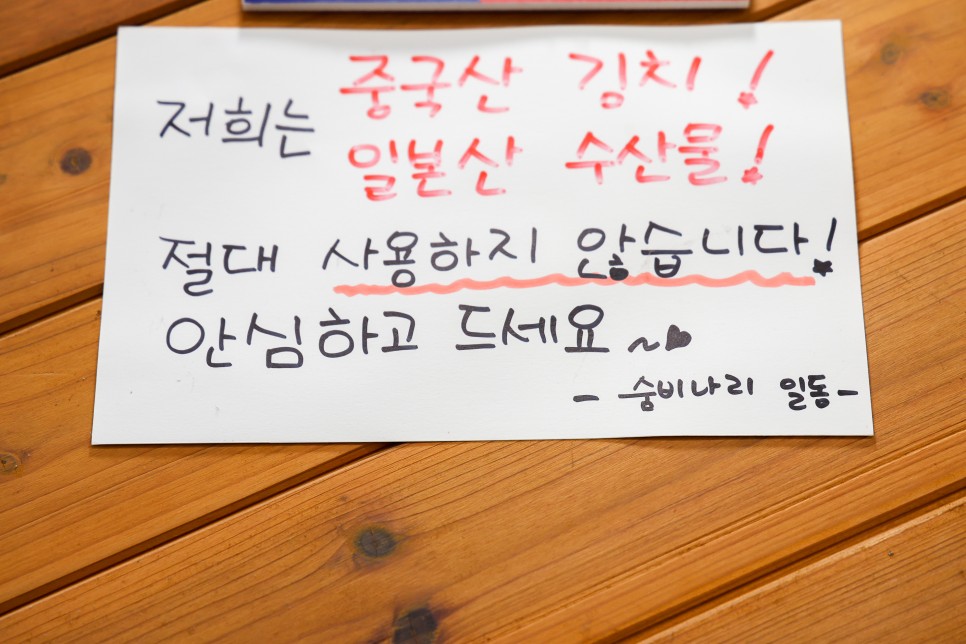 저희는 중국산 김치!
일본산 수산물!
절대 사용하지 않습니다!
안심하고 드세요~♥
- 숨비나리 일동-